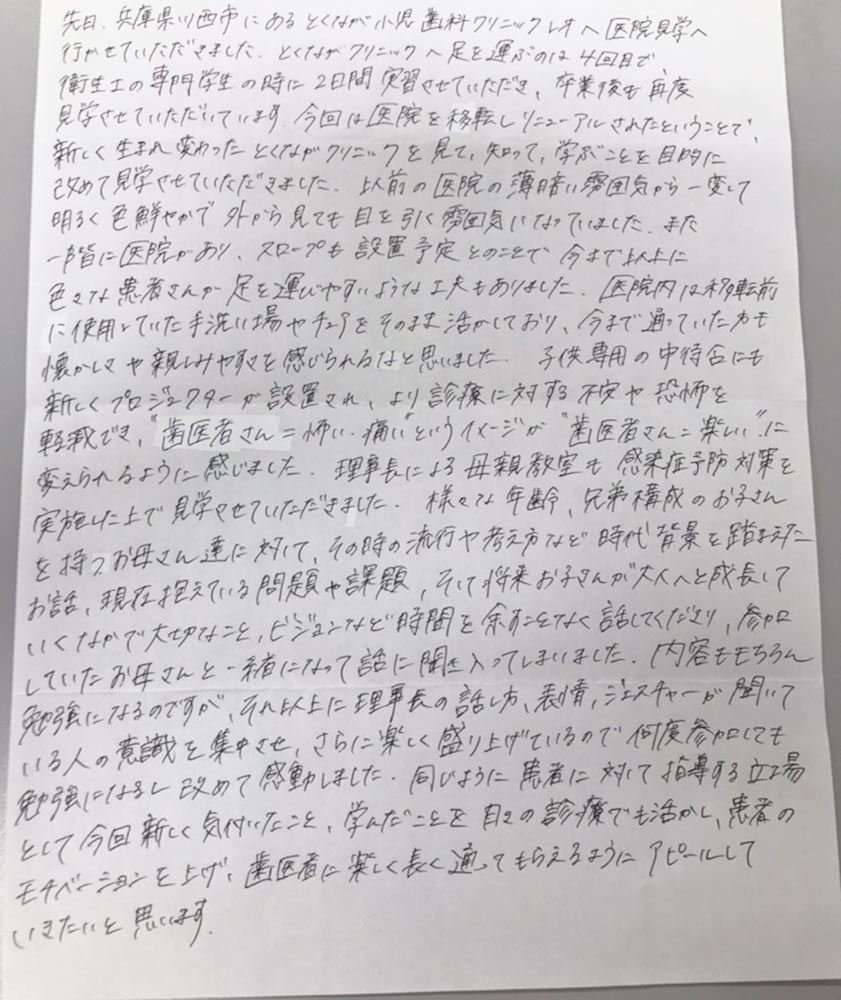 先日、兵庫県川西市にあるとくなが小児歯科クリニックレオへ医院見学へ
行かせていただきました。とくながクリニックへ足を運ぶのは4回目で、
衛生士の専門学生の時に2日間実習させていただき、卒業後も再度
見学させていただいています。今回は医院を移転しリニューアルされたということで、
新しく生まれ変わったとくながクリニックを見て、知って、学ぶことを目的に
改めて見学させていただきました。以前の医院の薄暗い雰囲気から一変して
明るく色鮮やかで外から見ても目を引く雰囲気になっていました。また
一階に医院があり、スロープも設置予定とのことで今まで以上に
色々な患者さんが足を運びやすいような工夫もありました。医院内は移転前
に使用していた手洗い場やチェアをそのまま活かしており、今まで通っていた方も
懐かしさや親しみやすさを感じられるなと思いました。子供専用の中待合にも
新しくプロジェクターが設置され、より診療に対する不安や恐怖を
軽減でき、"歯医者さん=怖い・痛い"というイメージが"歯医者さん=楽しい"に
変えられるように感じました。理事長による母親教室も感染症予防対策を
実施した上で見学させていただきました。様々な年齢、兄弟構成のお子さん
を持つお母さん達に対して、その時の流行や考え方など時代背景を踏まえた
お話、現在抱えている問題や課題、そして将来お子さんが大人へと成長して
いくなかで大切なこと、ビジョンなど時間を余すことなく話してくださり、参加
していたお母さんと一緒になって話に聞き入ってしまいました。内容ももちろん
勉強になるのですが、それ以上に理事長の話し方、表情、ジェスチャーが聞いて
いる人の意識を集中させ、さらに楽しく盛り上げているので何度参加しても
勉強になるし改めて感動しました。同じように患者に対して指導する立場
として今回新しく気付いたこと、学んだことを日々の診療でも活かし、患者の
モチベーションを上げ、歯医者に楽しく長く通ってもらえるようにアピールして
いきたいと思います。